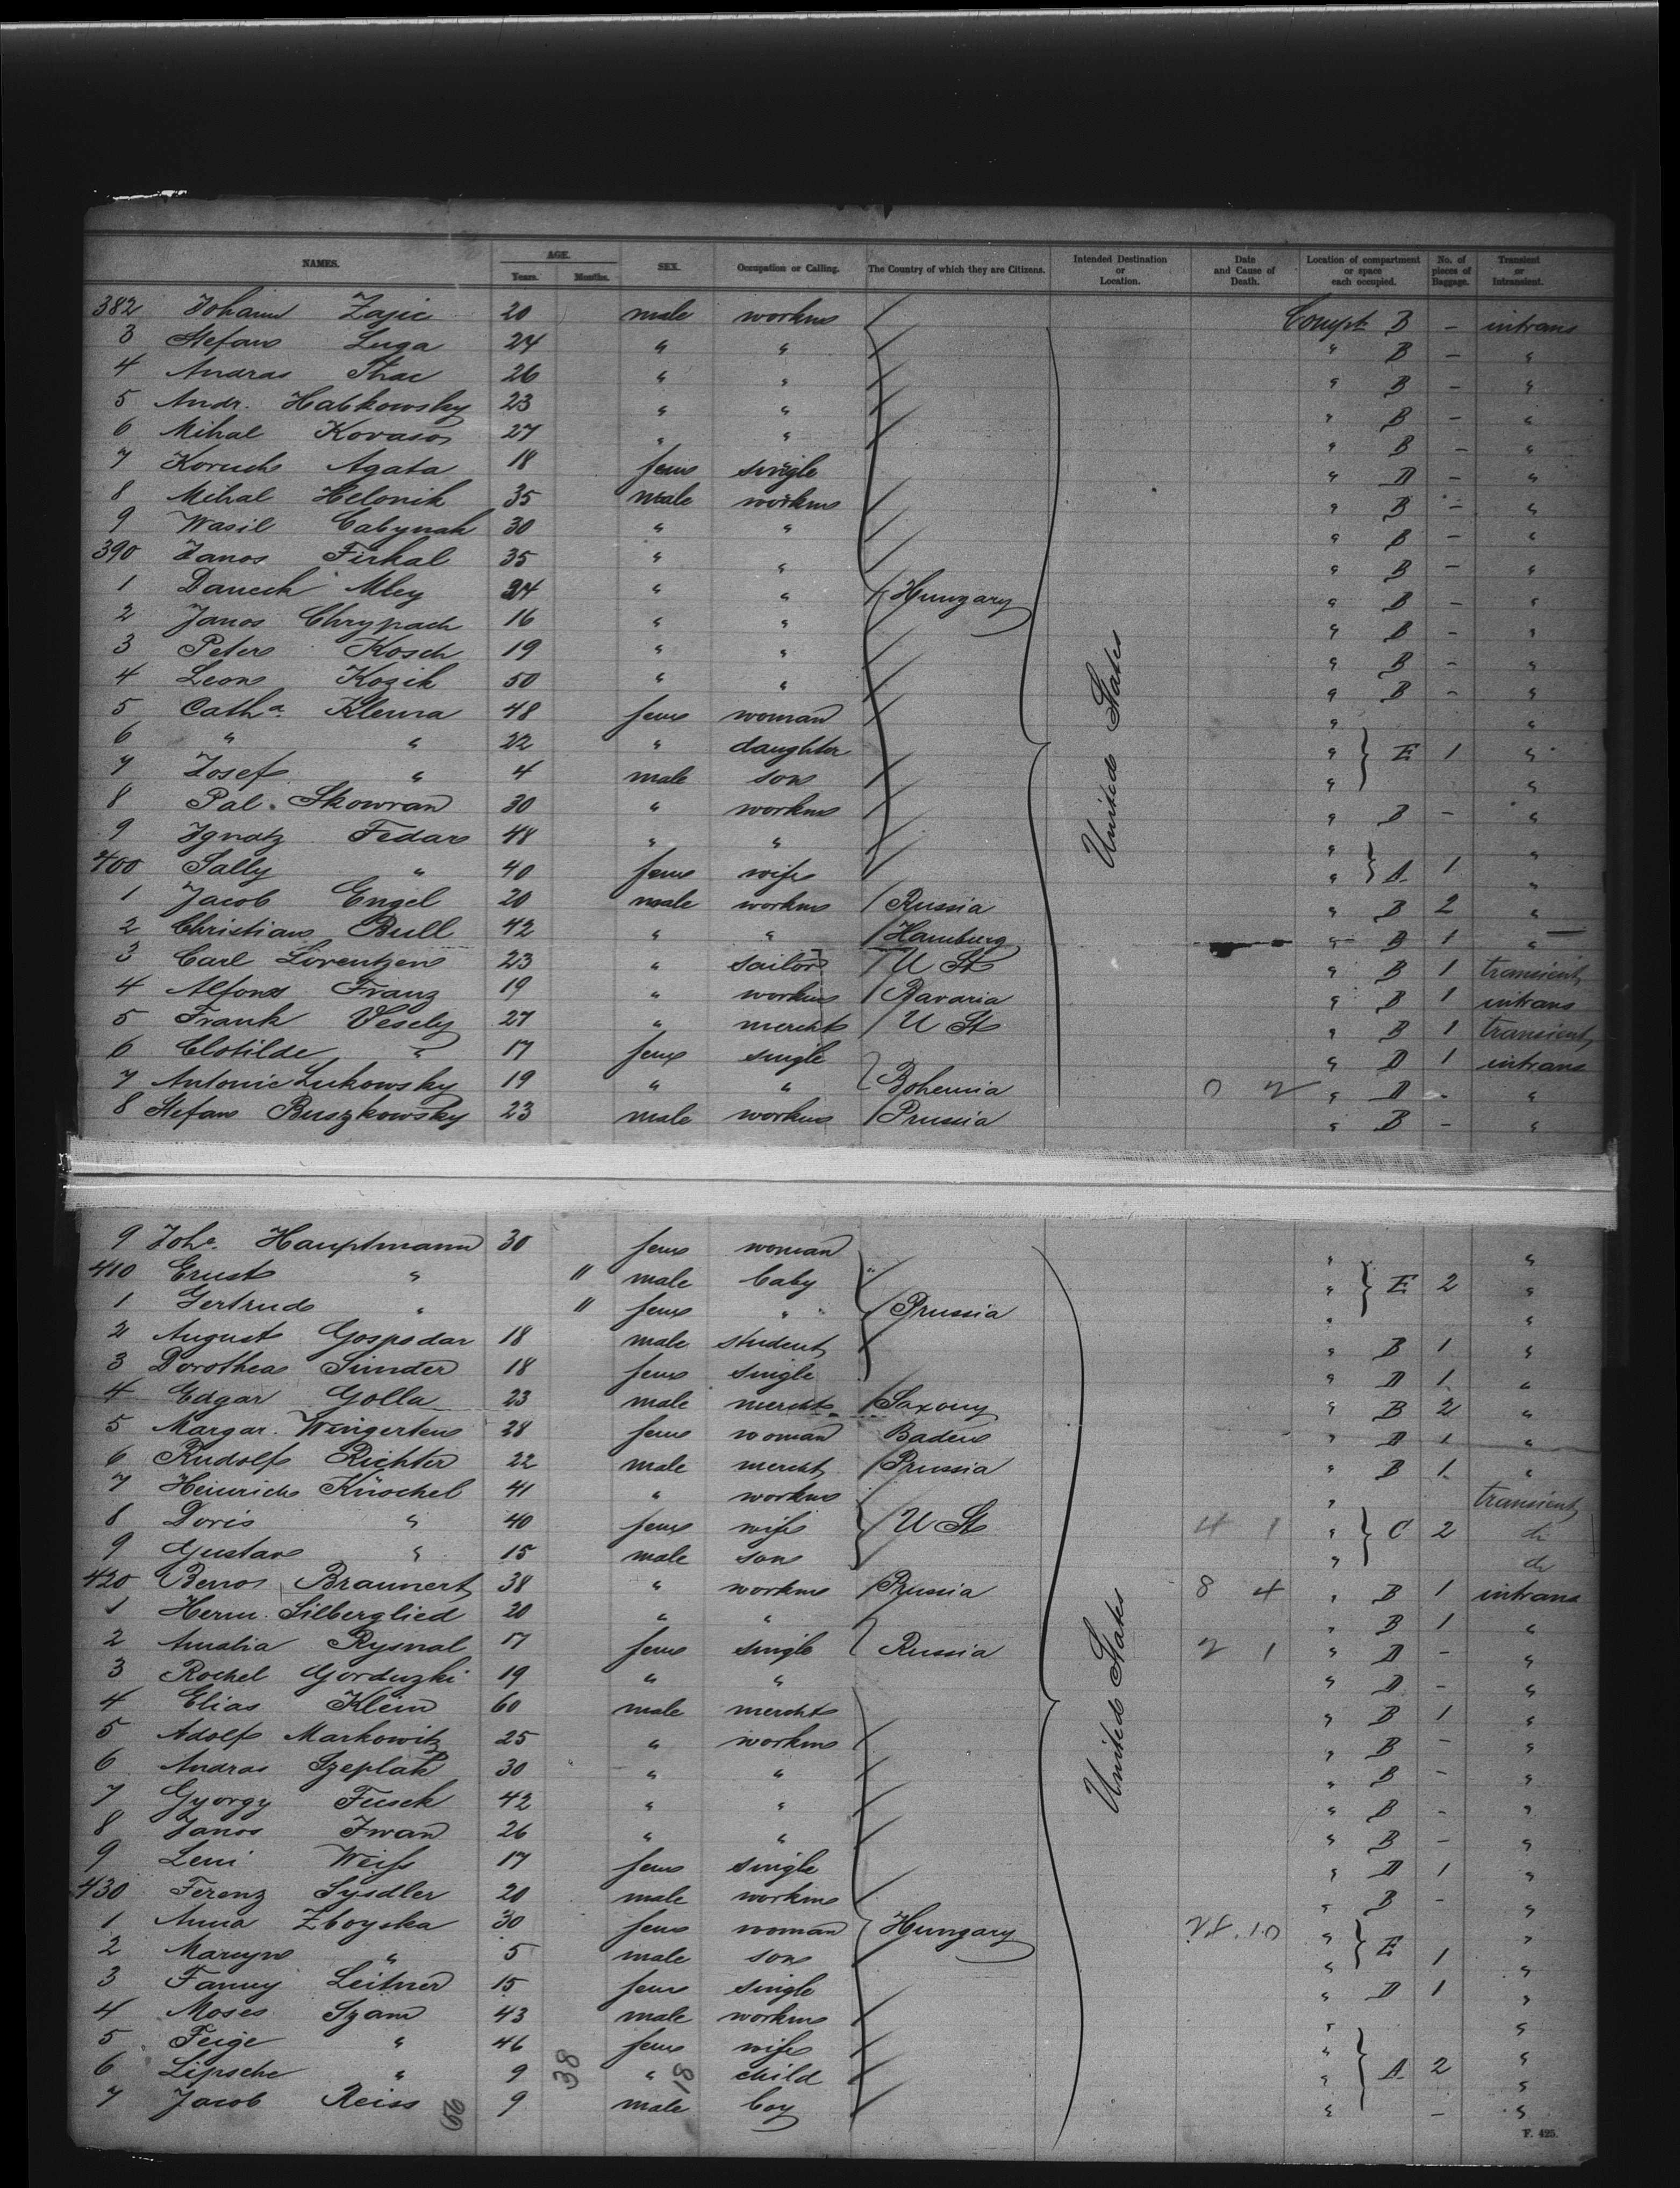 NAMES. AGE. Years. Months. SEX. Occupation or Calling. The Country of which they are Citizens. Intended Destination or Location. Date and Cause of Death. Location of compartment or space each occupied. No. of pieces of Baggage. Transient or Intransient.
382 Johann Zajic 20 male workm Compt B - intrans
3 Stefan Luga 24 " " " B - "
4 Andras 26 " " " B - "
5 Andr. Habkowsky 23 " " " B - "
6 Mihal Kovasos 27 " " " B - "
7 Agata 18 fem single " D - "
8 Mihal Helonik 35 male workm " B - "
9 Wasil Cabynak 30 " " " B - "
390 Janos Firkal 35 " " " B - "
1 Mley 24 " " Hungary " B - "
2 Janos Chrypach 16 " " " B - "
3 Peter Kosch 19 " " " B - "
4 Leon Kozik 50 " " " B - "
5 Cath a. Klema 48 fem woman " "
6 " " 22 " daughter " E 1 "
7 Josef " 4 male son " "
8 Pal. Skowran 30 " workm United States " B - "
9 Ignatz Fedar 48 " " " "
400 Sally " 40 fem wife " A 1 "
1 Jacob Engel 20 male workm Russia " B 2 "
2 Christian Bull 42 " " Hamburg " B 1 "
3 Carl Lorentzen 23 " sailor U St " B 1 transient
4 Alfons Franz 19 " workm Bavaria " B 1 intrans
5 Frank Vesely 27 " mercht U St " B 1 transient
6 Clotilde " 17 fem single " D 1 intrans
7 Antonie Lukowsky 19 " " Bohemia " D - "
8 Stefan Buszkowsky 23 male workm Prussia " B - "
9 Johe. Hauptmann 30 fem woman " "
410 Ernst " 11 male baby " " E 2 "
1 Gertrud " 11 fem " Prussia " "
2 August Gospodar 18 male student " B 1 "
3 Dorothea Sunder 18 fem single " D 1 "
4 Edgar Golla 23 male mercht Saxony " B 2 "
5 Margar. Wingerten 28 fem woman Baden " D 1 "
6 Rudolf Richter 22 male mercht Prussia " B 1 "
7 Heinrich Knöchel 41 " workm " transient
8 Doris " 40 fem wife U St 4 1 " C 2 do
9 Gustav " 15 male son " do
420 Braunert 38 " workm Prussia 8 4 " B 1 intrans
1 Herm. Silberglied 20 " " " B 1 "
2 Amalia Rysnal 17 fem single Russia 2 1 " D - "
3 Rochel Gorduzki 19 " " " D - "
4 Elias Klein 60 male mercht United States " B 1 "
5 Adolf Markowitz 25 " workm " B - "
6 Andras Szeplak 30 " " " B - "
7 Gyorgy Fusek 42 " " " B - "
8 Janos Iwan 26 " " " B - "
9 Leni Weiss 17 fem single " D 1 "
430 Ferenz Sysdler 20 male workm " B - "
1 Anna Zboyska 30 fem woman Hungary " "
2 " 5 male son " E 1 "
3 Fanny Leitner 15 fem single " D 1 "
4 Moses Szam 43 male workm " "
5 Feige " 46 fem wife " "
6 Lipsche " 9 " child " A 2 "
7 Jacob Reiss 9 male boy " - "
66 38 18
F. 425.